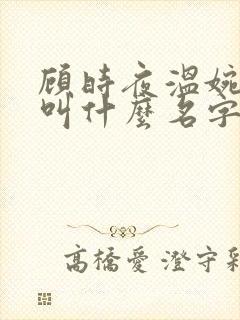 顾時夜溫婉
叫什麼名字
高橋愛 澄守彩